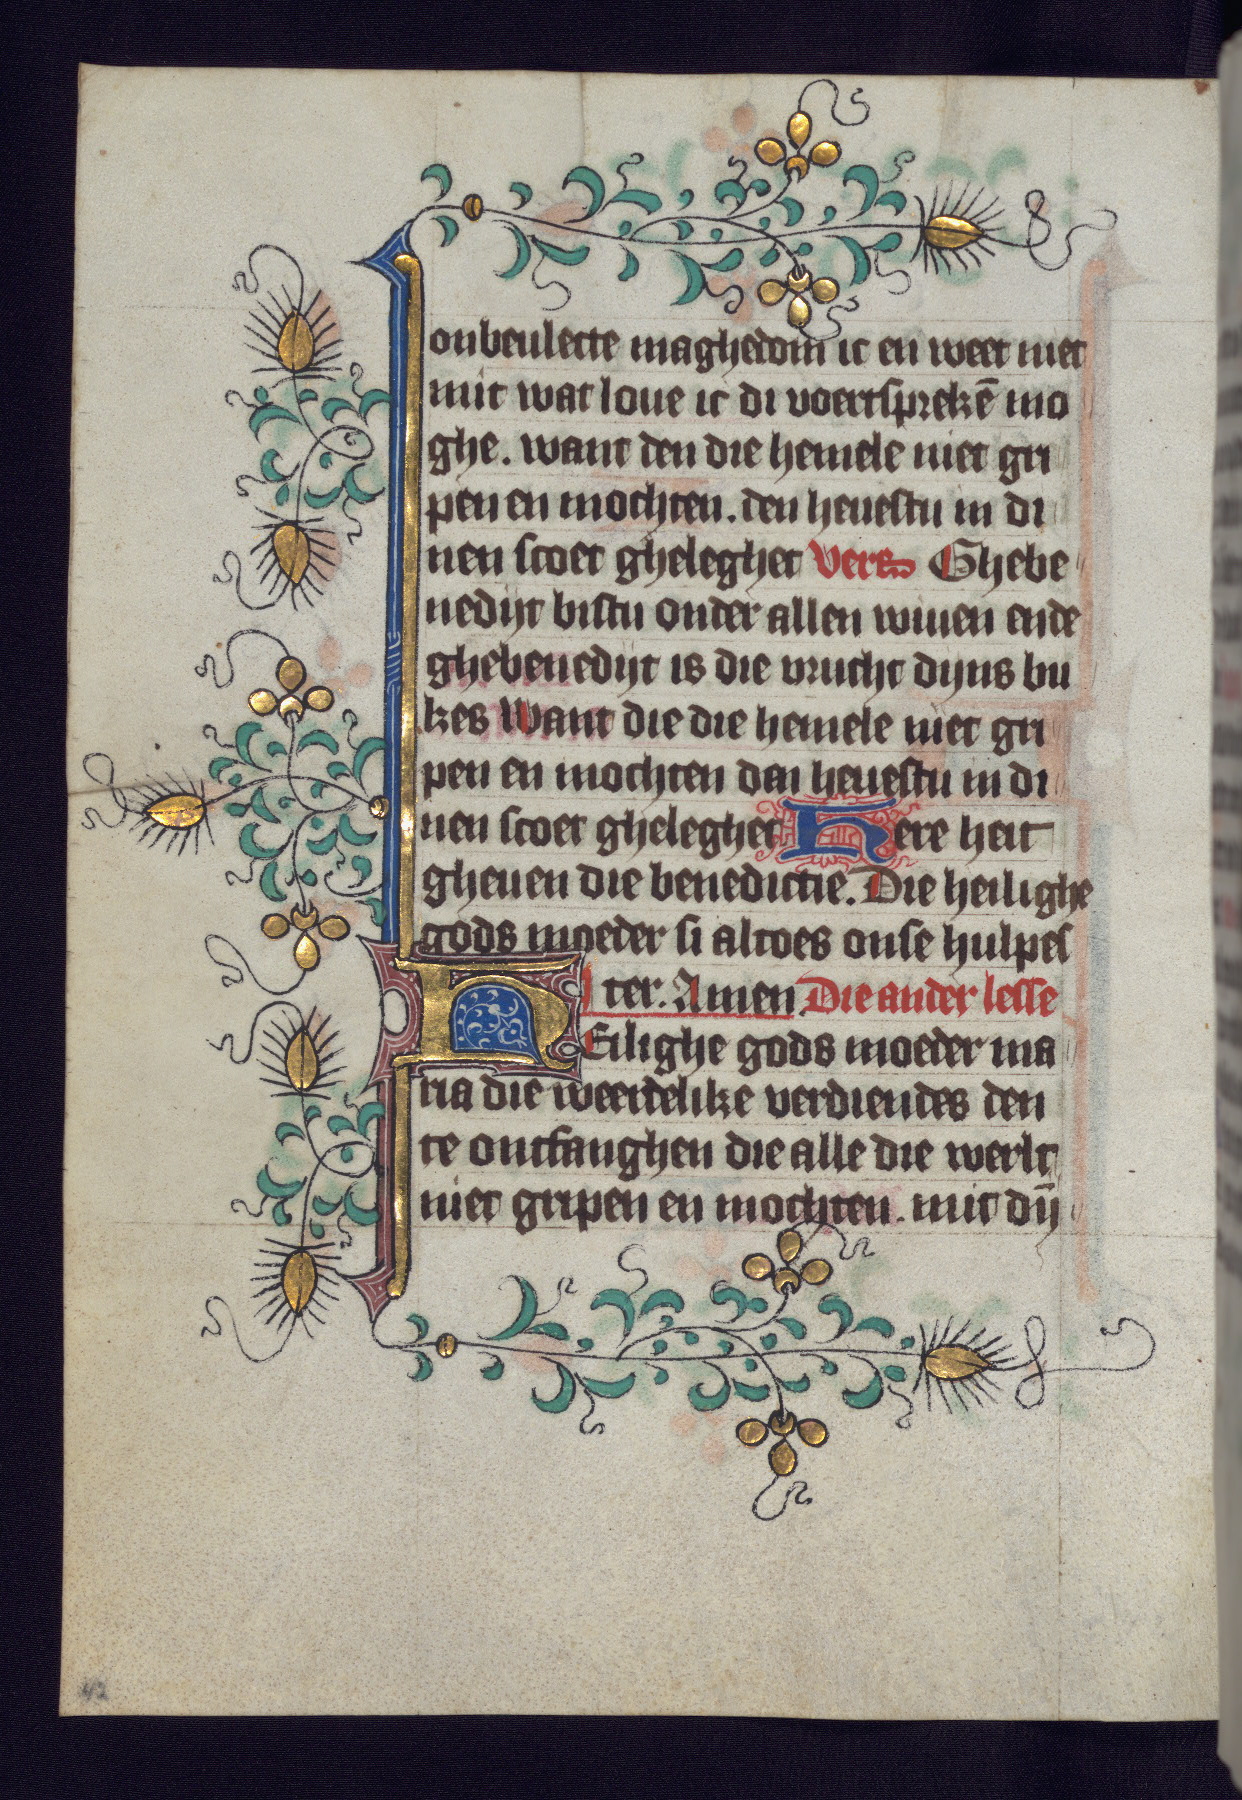 onbeulecte maghedom ic en weet niet
mit wat loue ic di voertsprekē mo
ghe. want den die hemele niet gri
pen en mochten. den heuestu in di
nen scoet gheleghet vers Ghebe
nedijt bistu onder allen wiuen ende
ghebenedijt is die vrucht dijns bu
kes Want die die hemele niet gri
pen en mochten dan heuestu in di
nen scoet gheleghet Here heit
gheuen die benedictie. Die heilighe
gods moeder si altoes onse hulpes
ter. Amen. Die ander lesse
HEilighe gods moeder ma
ria die weerdelike verdiendes den
te ontfanghen die alle die werlt
niet gripen en mochten. mit dijn̄
42